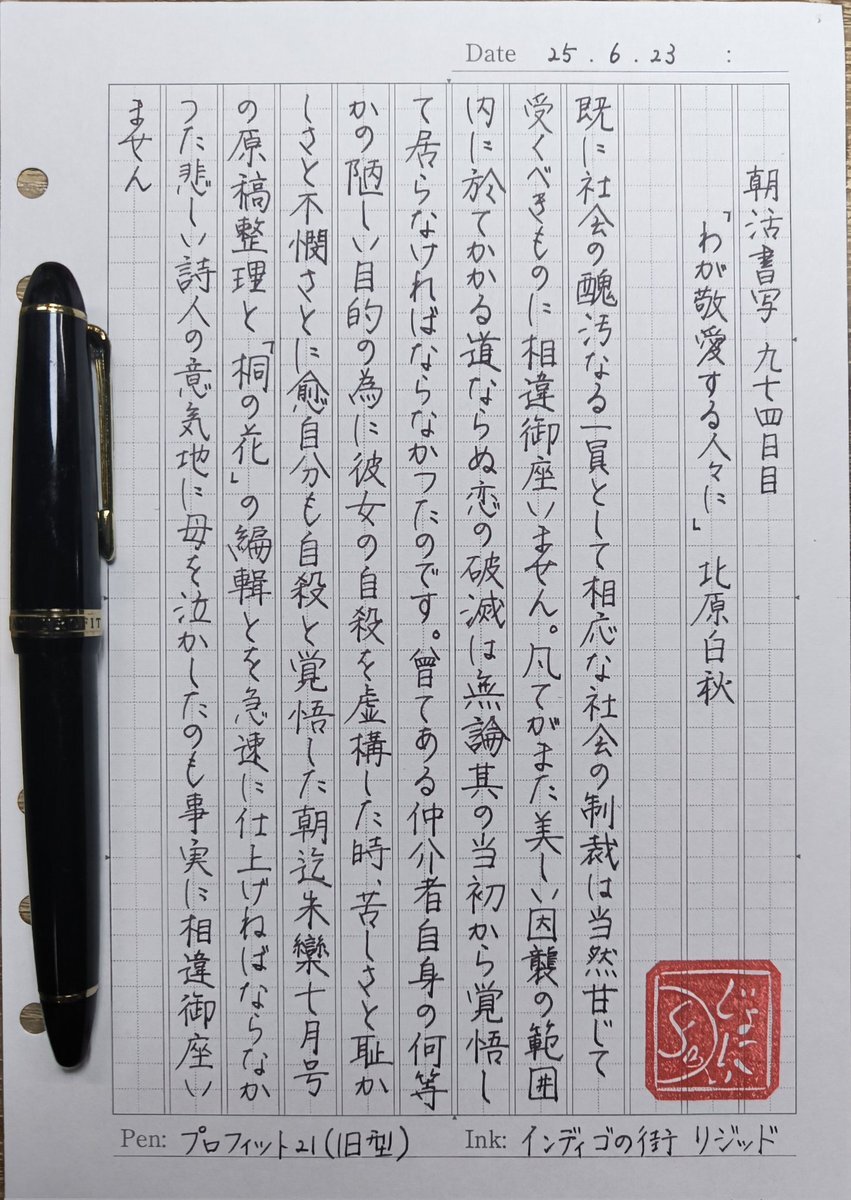 Date 25.6.23 :
朝活書写 九七四日目
「わが敬愛する人々に」 北原白秋
既に社会の醜汚なる一員として相応な社会の制裁は当然甘じて
受くべきものに相違御座いません。凡てがまた美しい因襲の範囲
内に於てかかる道ならぬ恋の破滅は無論其の当初から覚悟し
て居らなければならなかつたのです。曾てある仲介者自身の何等
かの陋しい目的の為に彼女の自殺を虚構した時、苦しさと恥か
しさと不憫さとに愈自分も自殺と覚悟した朝迄朱欒十月号
の原稿整理と「桐の花」の編輯とを急速に仕上げねばならなか
つた悲しい詩人の意気地に母を泣かしたのも事実に相違御座い
ません
Pen: プロフィット21(旧型)
Ink: インディゴの街 リジッド